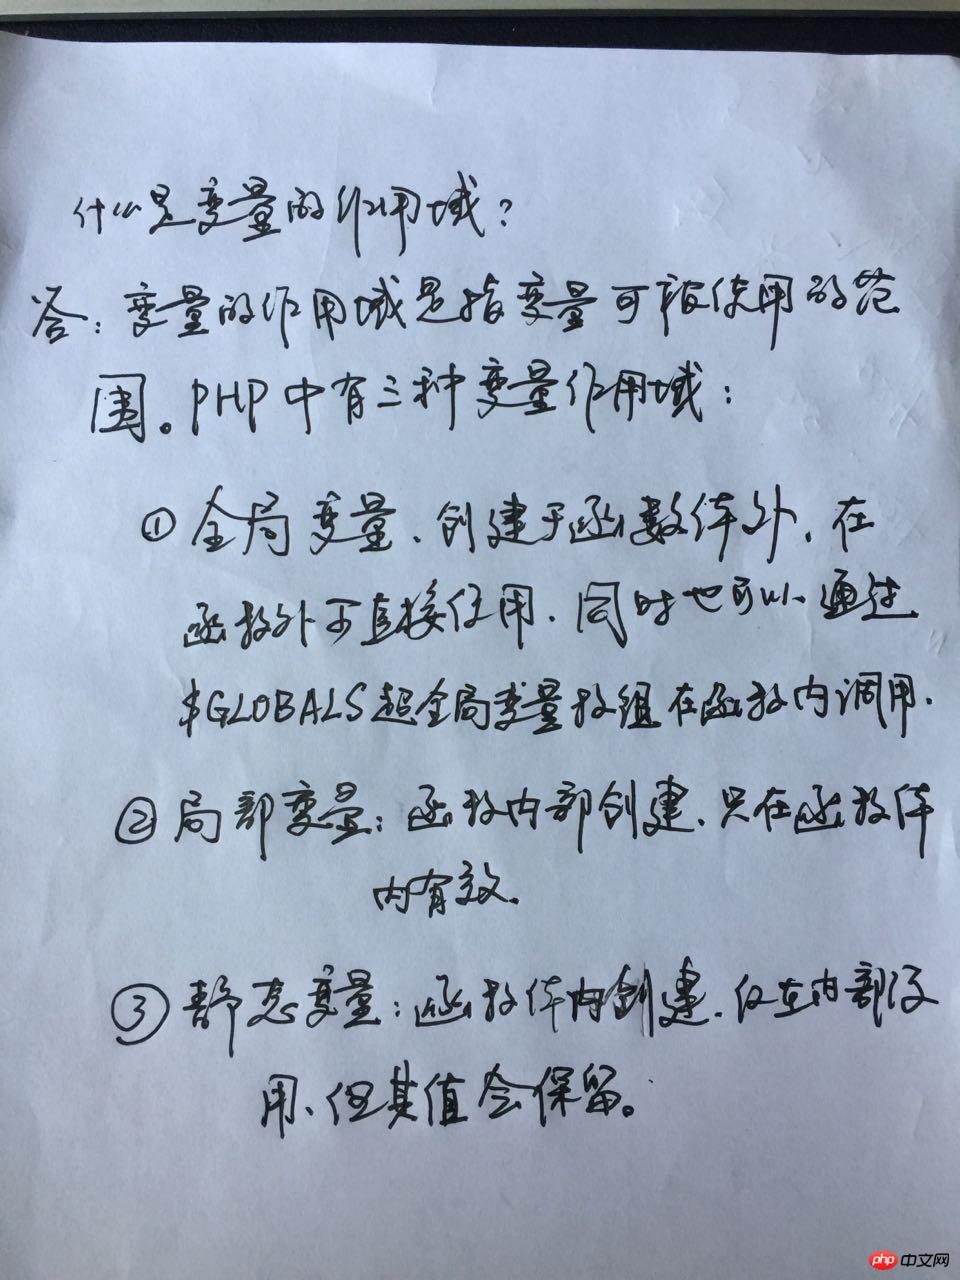 什么是变量的作用域?
答:变量的作用域是指变量可被使用的范
围。PHP中有三种变量作用域:
① 全局变量、创建于函数体外、在
函数外可直接使用.同时也可以通过
$GLOBALS超全局变量数组在函数内调用.
② 局部变量:函数内部创建、只在函数体
内有效.
③ 静态变量:函数体内创建、仅在内部使
用、但其值会保留。
php 中文网